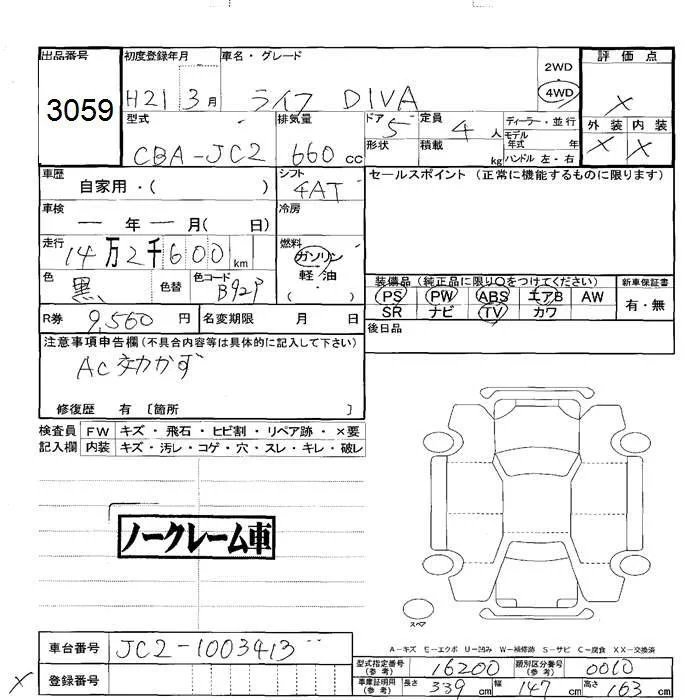 出品番号 初度登録年月 車名・グレード 2WD 4WD 評価点
3059 H21 3月 ライフ DIVA ×
型式 排気量 ドア 定員 ディーラー・並行 外装 内装
CBA-JC2 660cc 5 4人 モデル年式 年 × ×
形状 積載 kg ハンドル 左・右
車歴 自家用・( ) シフト 4AT セールスポイント (正常に機能するものに限ります)
車検 ー年ー月( 日) 冷房
走行 14万2千600km 燃料 ガソリン
軽油
( ・ )
色 黒 色替 色コード B92P
装備品 (純正品に限り○をつけてください) 新車保証書
PS PW ABS エアB AW 有・無
SR ナビ TV カワ
R券 9,560円 名変期限 月 日 後日品
注意事項申告欄 (不具合内容等は具体的に記入して下さい)
AC効かず
修復歴 有 〔箇所 〕
検査員 FW キズ・飛石・ヒビ割・リペア跡・×要
記入欄 内装 キズ・汚レ・コゲ・穴・スレ・キレ・破レ
ノークレーム車
スペア
A-キズ E-エクボ U-凹み W-補修跡 S-サビ C-腐食 XX-交換済
車台番号 JC2-1003413
型式指定番号 (参考) 16200 類別区分番号 (参考) 0010
× 登録番号
車庫証明用 (参考) 長さ 339cm 幅 147cm 高さ 163cm